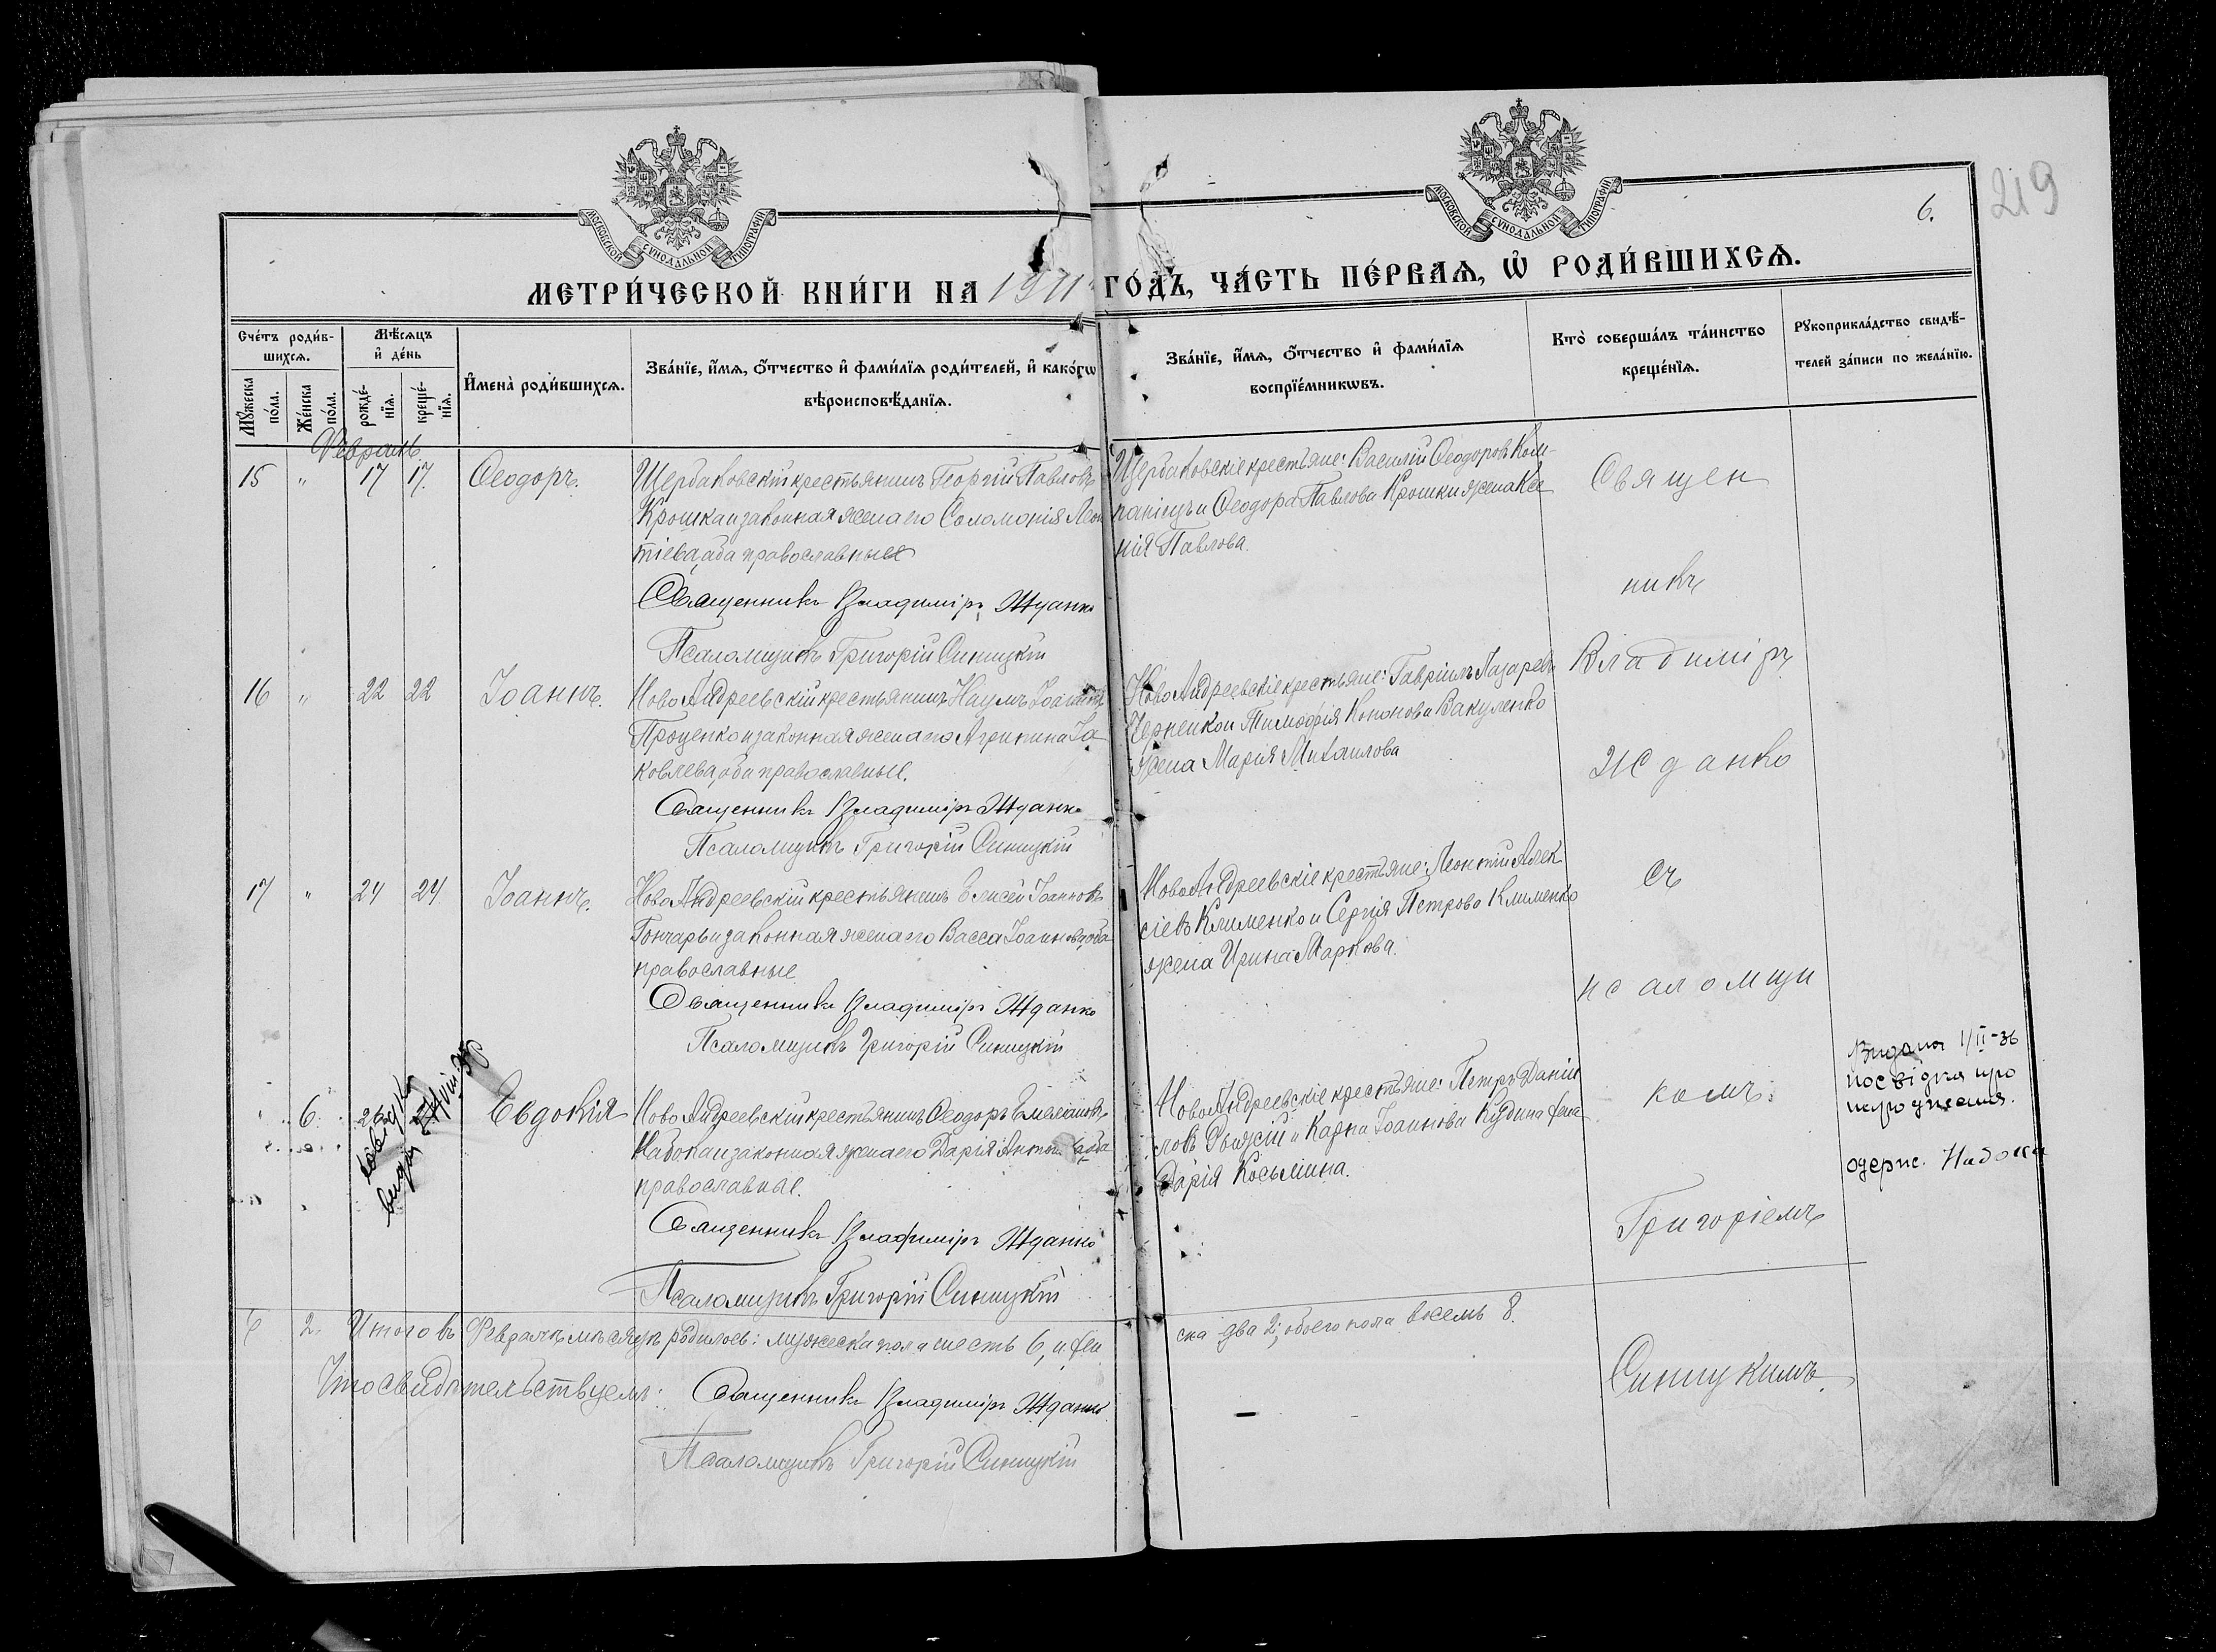 219
6.
МОСКОВСКОЙ СѴНОДАЛЬНОЙ ТИПОГРАФІИ
МОСКОВСКОЙ СѴНОДАЛЬНОЙ ТИПОГРАФІИ
МЕТРИ́ЧЕСКОЙ КНИ́ГИ НА 1911 ГО́ДЪ, ЧА́СТЬ ПЕ́РВАѦ, Ѽ РОДИ́ВШИХСѦ.
Сче́тъ роди́в-
шихсѧ.
Мꙋ́жеска по́ла.
Же́нска по́ла.
Мѣ́сѧцъ и҆ де́нь
рожде́-
нїѧ.
креще́-
нїѧ.
И҆мена̀ роди́вшихсѧ.
Зва́нїе, и҆́мѧ, ѻ҆́тчество и҆ фами́лїѧ роди́телей, и҆ како́гѡ
вѣроисповѣ́данїѧ.
Зва́нїе, и҆́мѧ, ѻ҆́тчество и҆ фами́лїѧ
воспрїе́мникѡвъ.
Кто̀ соверша́лъ та́инство
креще́нїѧ.
Рꙋкоприкла́дство свидѣ́-
телей за́писи по жела́нїю.
Февраль
15 " 17 17. Ѳеодоръ.
Щербаковскій крестьянинъ Георгій Павловъ
Крошка и законная жена его Соломонія Леон
тіева, оба православные
Священникъ Владиміръ Жданко
Псаломщикъ Григорій Синицкій
Щербаковскіе крестьяне: Василій Ѳеодоровъ Ком-
паніецъ и Ѳеодора Павлова Крошки жена Ксе
нія Павлова.
16 " 22 22 Іоаннъ.
Ново Андреевскій крестьянинъ Наумъ Іоанновъ
Проценко и законная жена его Агрипина Іа
ковлева, оба православные.
Священникъ Владиміръ Жданко
Псаломщикъ Григорій Синицкій
Ново Андреевскіе крестьяне: Гавріилъ Лазаревъ
Черненко и Тимофія Кононова Вакуленко
жена Марія Михаилова
17 " 24 24 Іоаннъ.
Ново Андреевскій крестьянинъ Елисей Іоанновъ
Гончаръ и законная жена его Васса Іоаннова, оба
православные
Священникъ Владиміръ Жданко
Псаломщикъ Григорій Синицкій
Ново Андреевскіе крестьяне: Леонтій Алек
сіевъ Клименко и Сергія Петрова Клименко
жена Ирина Маркова.
6 Евдокія
Ново Андреевскій крестьянинъ Ѳеодоръ Емеліановъ
Набока и законная жена его Дарія оба
православные.
Священникъ Владиміръ Жданко
Псаломщикъ Григорій Синицкій
Ново Андреевскіе крестьяне: Петръ Даніи
ловъ и Карпа Іоаннова жена
Дарія Косьмина.
Священ
никъ
Владиміръ
Жданко
съ
псаломщи
комъ
Григоріемъ
Синицкимъ.
Видана 1/II-36
посвідка про
народження.
одерж. Набока
6 2. Итого въ Февралѣ мѣсяцѣ родилось: мужеска пола шесть 6, и жен
ска два 2; обоего пола восемь 8.
Что свидѣтельствуемъ: Священникъ Владиміръ Жданко
Псаломщикъ Григорій Синицкій